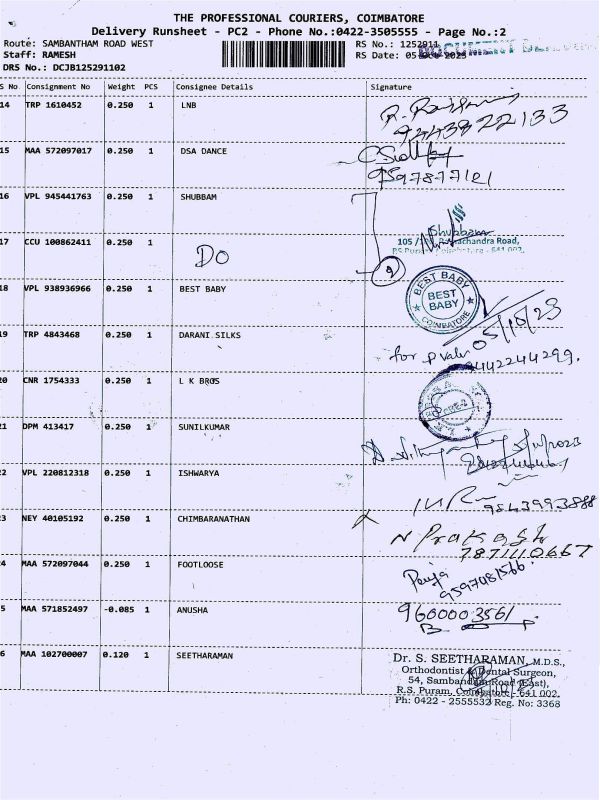 THE PROFESSIONAL COURIERS, COIMBATORE
Delivery Runsheet - PC2 - Phone No.:0422-3505555 - Page No.:2
Route: SAMBANTHAM ROAD WEST
RS No.: 1252911
Staff: RAMESH
RS Date: 05
2023
DRS No.: DCJB125291102
S No Consignment No Weight PCS Consignee Details Signature
14 TRP 1610452 0.250 1 LNB
9243822133
15 MAA 572097017 0.250 1 DSA DANCE
9597877121
16 VPL 945441763 0.250 1 SHUBBAM
Shubbam
17 CCU 100862411 0.250 1
DO
105 / Ramachandra Road,
2
18 VPL 938936966 0.250 1 BEST BABY
BEST BABY
BEST BABY
COIMBATORE
05/10/23
19 TRP 4843468 0.250 1 DARANI SILKS
for
9442244299.
20 CNR 1754333 0.250 1 L K BROS
21 DPM 413417 0.250 1 SUNILKUMAR
22 VPL 220812318 0.250 1 ISHWARYA
9843993888
23 NEY 40105192 0.250 1 CHIMBARANATHAN
N Prakash
7871110667
24 MAA 572097044 0.250 1 FOOTLOOSE
9597081566.
25 MAA 571852497 -0.085 1 ANUSHA
9600003561
26 MAA 102700007 0.120 1 SEETHARAMAN
Dr. S. SEETHARAMAN, M.D.S.,
Orthodontist & Dental Surgeon,
54, Sambandam Road (East),
R.S. Puram, Coimbatore - 641 002.
Ph: 0422 - 2555532 Reg. No: 3368